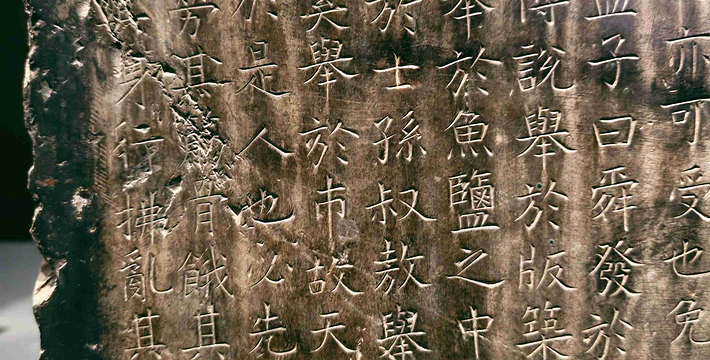 亦可受也免
孟子曰舜發於
傅說舉於版築
舉於魚鹽之中
於士孫叔敖舉
奚舉於市故天
於是人也必先
勞其筋骨餓其
身行拂亂其